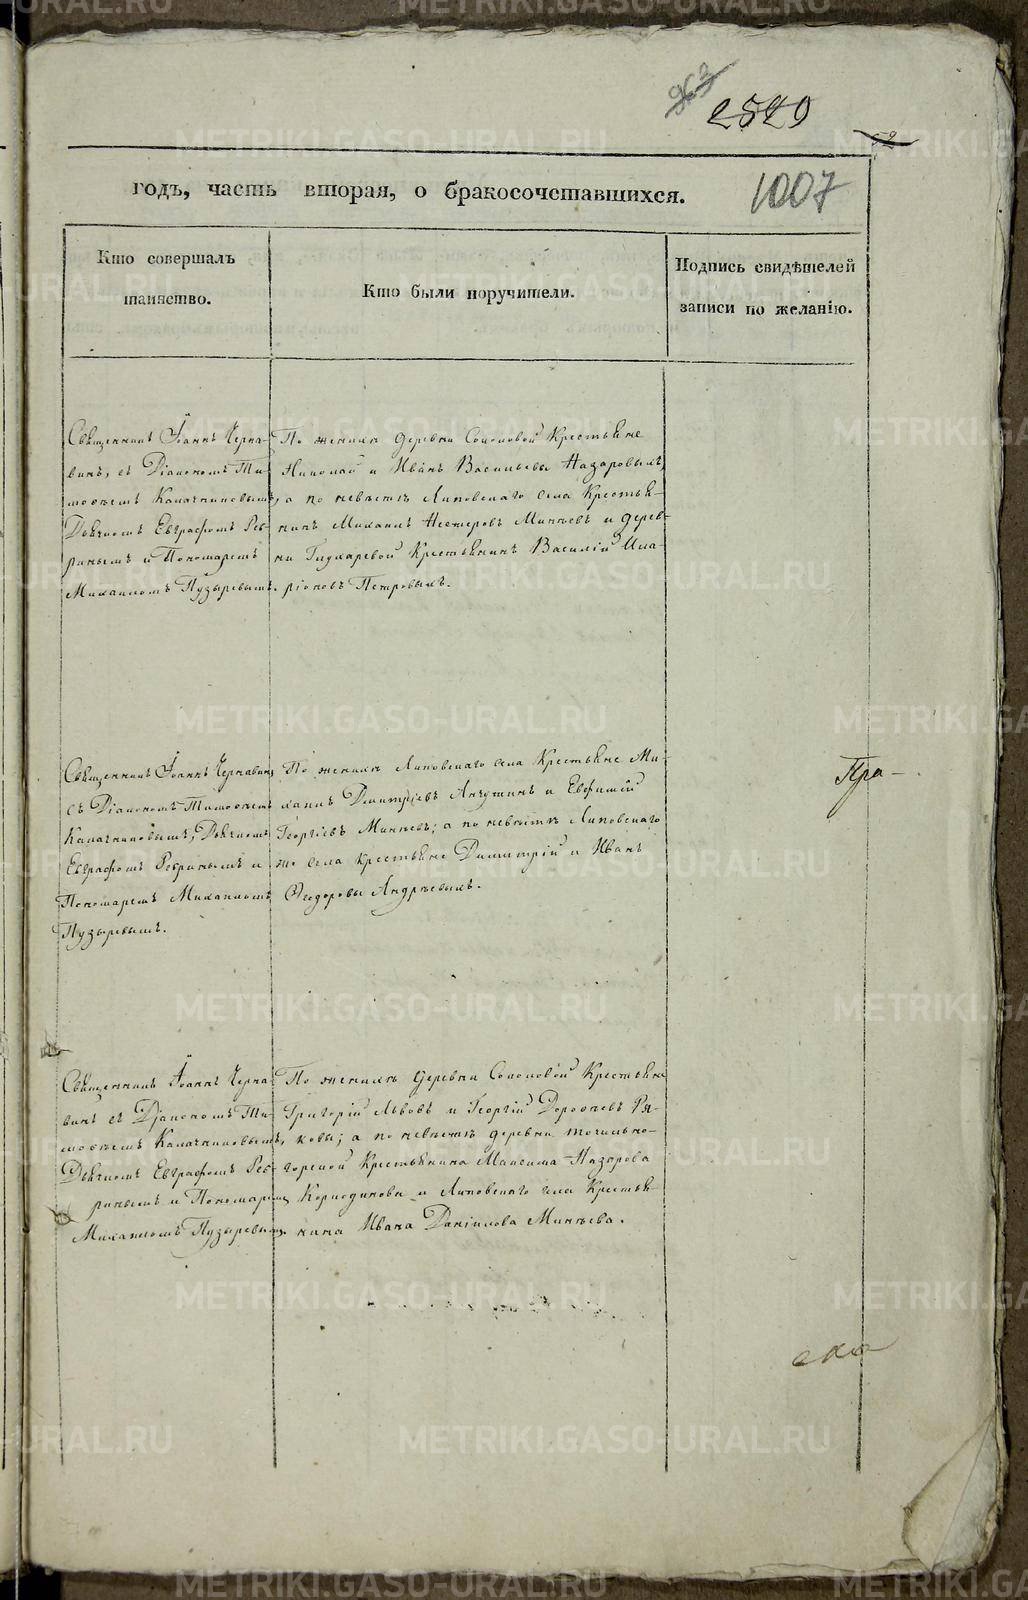 963
2529
52
годъ, часть вторая, о бракосочетавшихся.
1007
Кто совершалъ
таинство.
Кто были поручители.
Подпись свидѣтелей
записи по желанію.
Священникъ Іоаннъ Черна-
винъ, съ Діакономъ Ти-
моѳеемъ Калачниковымъ,
Дьячкомъ Евграфомъ Реб-
ринымъ и Пономаремъ
Михаиломъ Пузыревымъ.
По женихѣ деревни Соколовой Крестьяне
Николай и Иванъ Васильевы Назаровыхъ,
а по невѣстѣ Липовскаго села Крестья-
нинъ Михаилъ Нестеровъ Минѣевъ и дерев-
ни Глухаревой Крестьянинъ Василій Ила-
ріоновъ Петровыхъ.
Священникъ Іоаннъ Чернавинъ
съ Діакономъ Тимоѳеемъ
Калачниковымъ, Дьячкомъ
Евграфомъ Ребринымъ и
Пономаремъ Михаиломъ
Пузыревымъ.
По женихѣ Липовскаго села Крестьяне Ми-
хаилъ Димитріевъ Анчутинъ и Евфимій
Георгіевъ Минѣевъ; а по невѣстѣ Липовскаго
же села крестьяне Димитрій и Иванъ
Ѳеодоровы Андрѣевыхъ.
Пра-
Священникъ Іоаннъ Черна-
винъ съ Діакономъ Ти-
моѳеемъ Калачниковымъ,
Дьячкомъ Евграфомъ Реб-
ринымъ и Пономаремъ
Михаиломъ Пузыревымъ.
По женихѣ деревни Соколовой Крестьяне
Григорій Львовъ и Георгій Дороѳеевъ Ря-
ковы; а по невѣстѣ деревни точильно-
горской Крестьянина Максима Назарова
и Липовскаго села Крестья-
нина Ивана Даніилова Минѣева.
METRIKI.GASO-URAL.RU